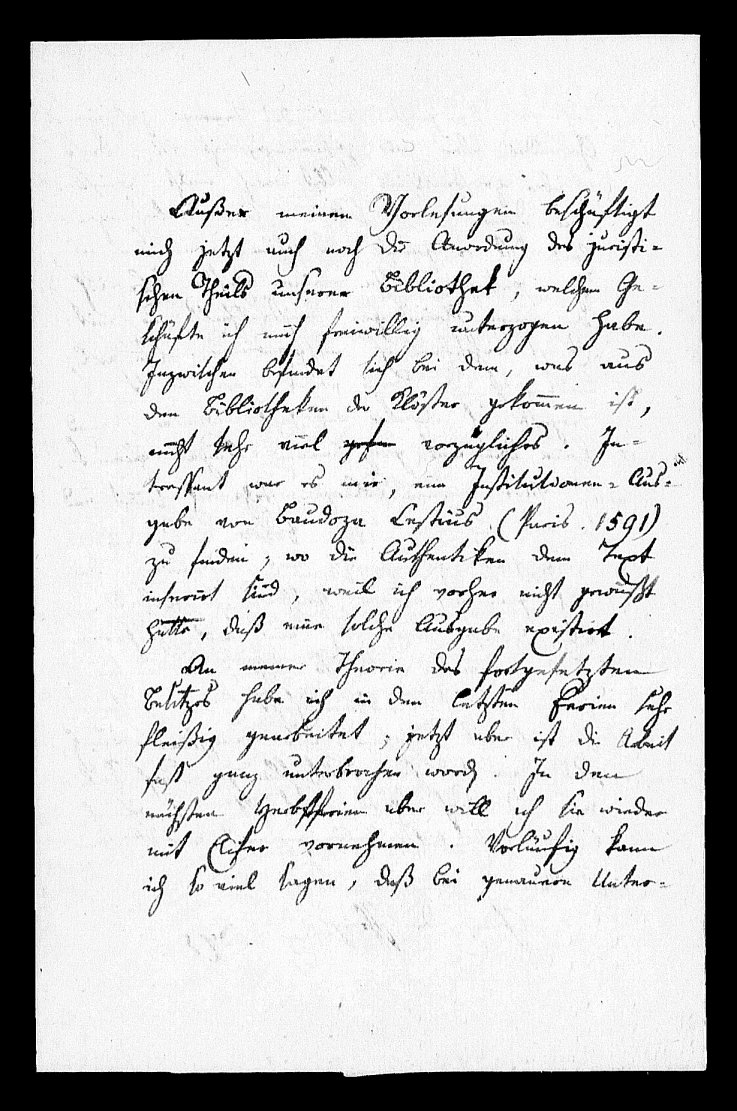 Außer meinen Vorlesungen beschäftigt
mich jetzt auch noch die Anordnung des juristi-
schen Theils unserer Bibliothek, welchem Ge-
schäfte ich mich freiwillig unterzogen habe.
Inzwischen befindet sich bei dem, was aus
den Bibliotheken der Klöster gekommen ist,
nicht sehr viel vorzügliches. In-
tressant war es mir, eine Institutionen-Aus-
gabe von Baudoza Cestius (Paris. 1591)
zu finden, wo die Authentiken dem Text
inserirt sind, weil ich vorher nicht gewußt
hatte, daß eine solche Ausgabe existirt.
An meiner Theorie des fortgesetzten
Besitzes habe ich in den letzten Ferien sehr
fleißig gearbeitet; jetzt aber ist die Arbeit
fast ganz unterbrochen word. In den
nächsten Herbstferien aber will ich sie wieder
mit Eifer vornehmen. Vorläufig kann
ich so viel sagen, daß bei genauern Unter-